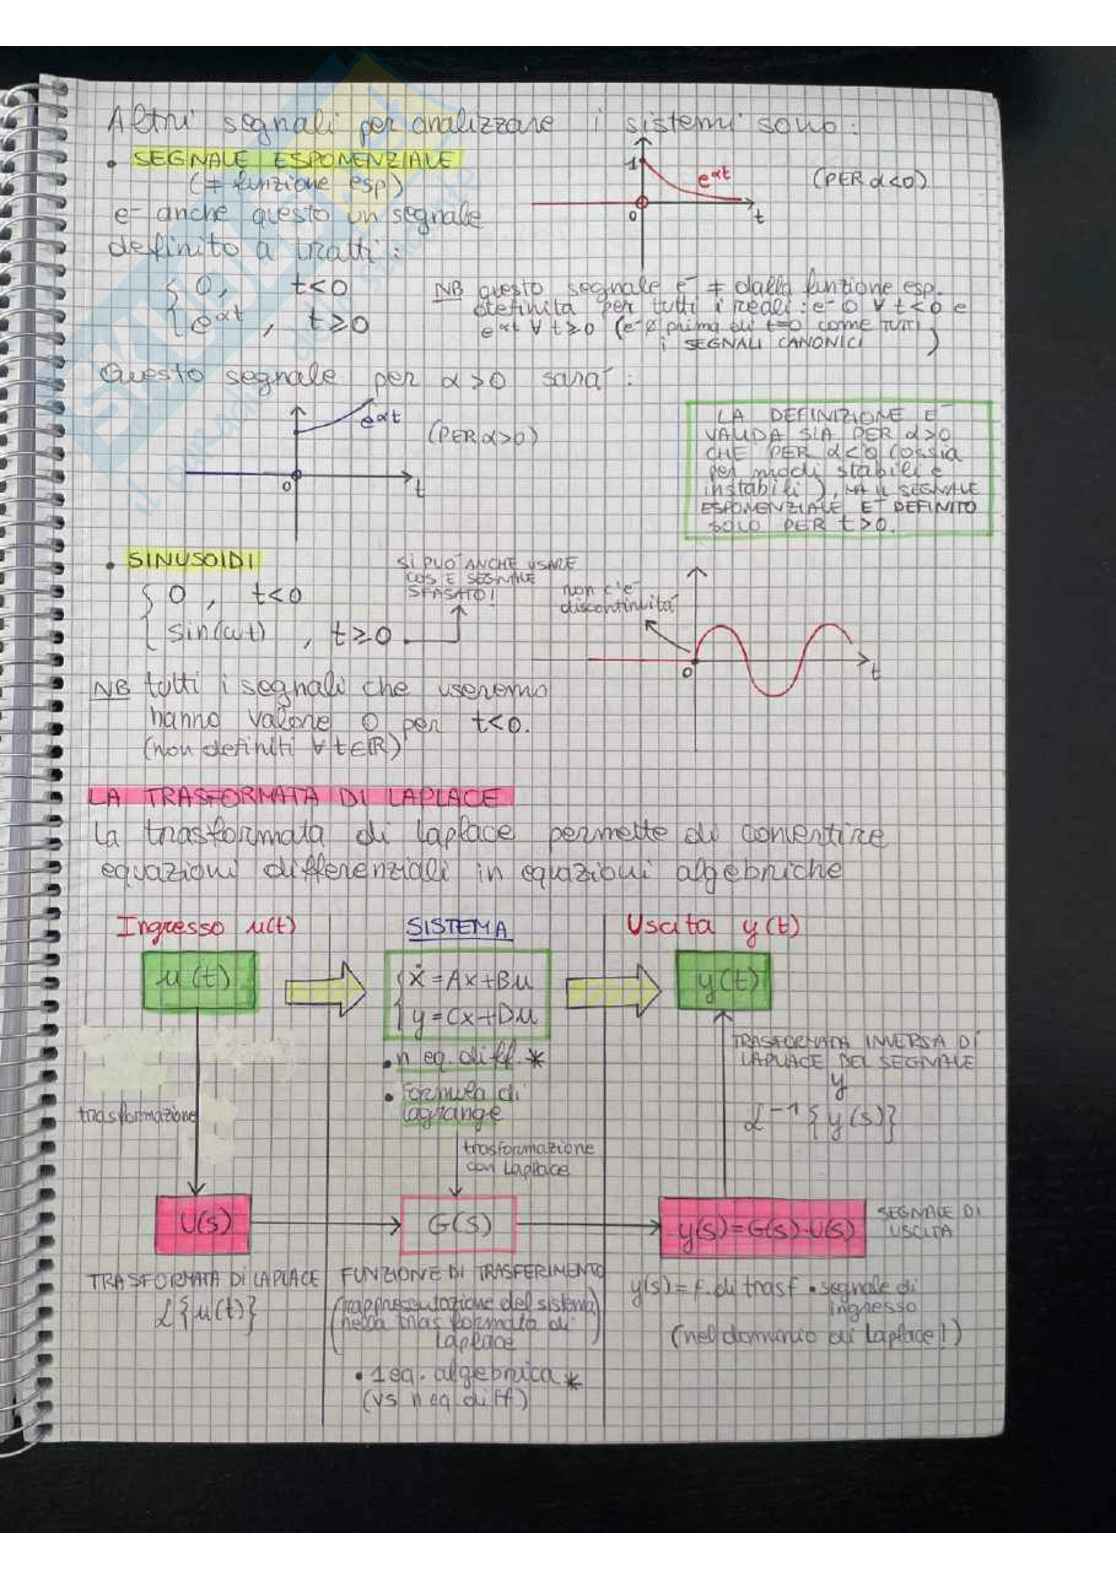 Altri segnali per analizzare i sistemi sono:
• SEGNALE ESPONENZIALE
(≠ funzione esp)
1
e^αt
(PER α<0)
0
t
e̅ anche questo un segnale
definito a tratti:
{ 0, t<0
{ e^αt, t≥0
NB questo segnale e̅ ≠ dalla funzione esp.
definita per tutti i reali: e̅ 0 ∀ t<0 e
e^αt ∀ t≥0 (e̅ ø prima di t=0 come TUTTI
i SEGNALI CANONICI)
Questo segnale per α>0 sara':
e^αt
(PER α>0)
0
t
LA DEFINIZIONE E'
VALIDA SIA PER α>0
CHE PER α<0 (ossia
per modi stabili e
instabili), MA IL SEGNALE
ESPONENZIALE E' DEFINITO
SOLO PER t>0.
• SINUSOIDI
SI PUO' ANCHE USARE
COS E SEGNALE
SFASATO!
{ 0, t<0
{ sin(ωt), t≥0
non c'e'
discontinuita'
0
t
NB tutti i segnali che useremo
hanno valore 0 per t<0.
(non definiti ∀ t∈ℝ)
LA TRASFORMATA DI LAPLACE
la trasformata di laplace permette di convertire
equazioni differenziali in equazioni algebriche
Ingresso u(t)
SISTEMA
Uscita y(t)
u(t)
{ ẋ = Ax+Bu
{ y = Cx+Du
y(t)
• n eq. diff. *
• formula di
lagrange
TRASFORMATA INVERSA DI
LAPLACE DEL SEGNALE
y
ℒ⁻¹{y(s)}
trasformazione
trasformazione
con Laplace
U(s)
G(s)
y(s)=G(s)·U(s)
SEGNALE DI
USCITA
TRASFORMATA DI LAPLACE
ℒ{u(t)}
FUNZIONE DI TRASFERIMENTO
(rappresentazione del sistema
nella trasformata di
laplace)
• 1 eq. algebrica *
(vs n eq. diff)
y(s) = f. di trasf • segnale di
ingresso
(nel dominio di laplace!)